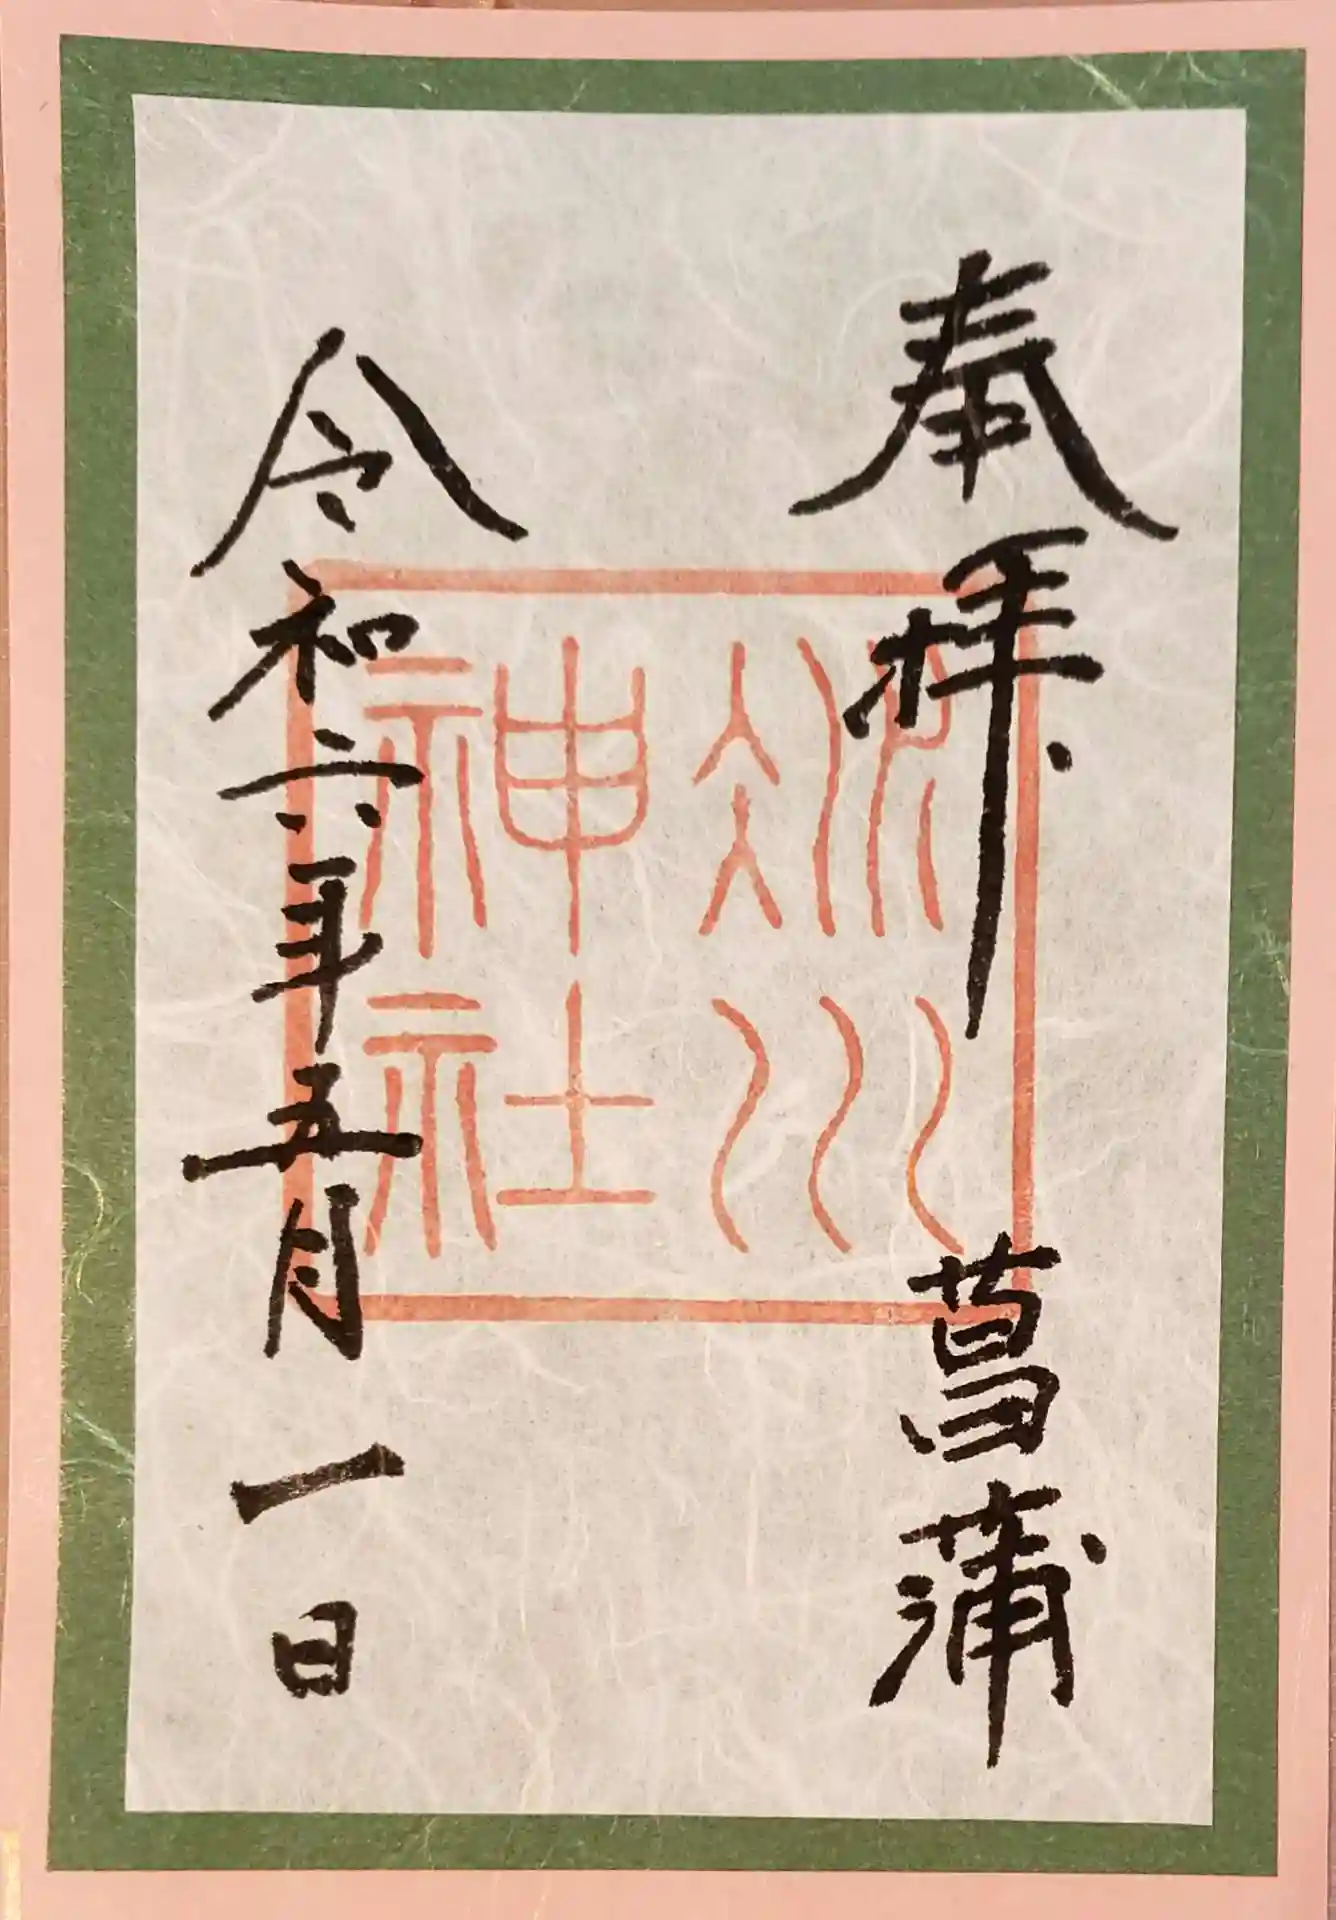 奉拝 菖蒲
冰川
神社
令和六年五月一日